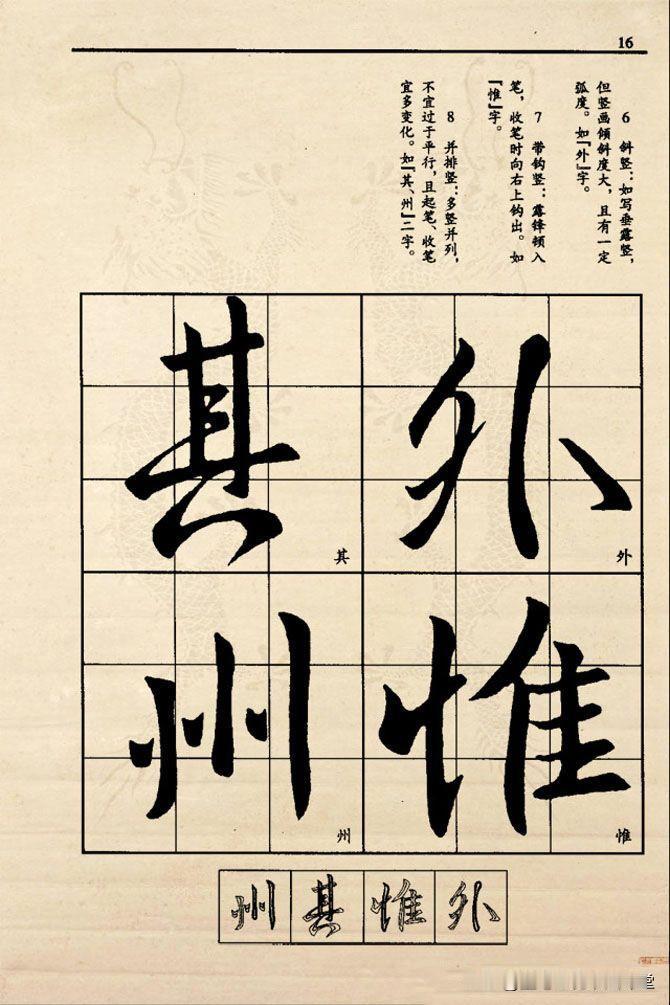 16
6 斜竖：如写垂露竖，
但竖画倾斜度大，且有一定
弧度。如『外』字。
7 带钩竖：露锋顿入
笔，收笔时向右上钩出。如
『惟』字。
8 并排竖：多竖并列，
不宜过于平行，且起笔、收笔
宜多变化。如『其、州』二字。
外
外
惟
惟
其
其
州
州
州其惟外